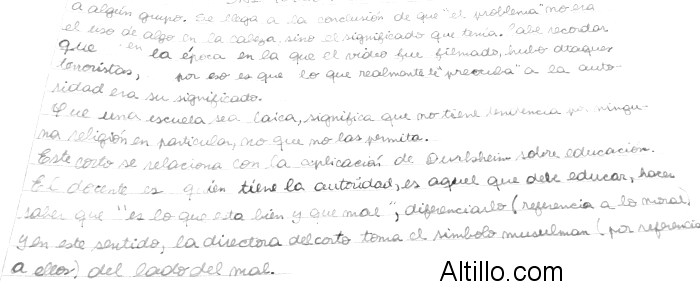 a algún grupo. Se llega a la conclusión de que "el problema" no era
el uso de algo en la cabeza, sino el significado que tenía. Cabe recordar
que en la época en la que el video fue filmado, hubo ataques
terroristas, por eso es que lo que realmente le "preocuba" a la auto-
ridad era su significado.
Que una escuela sea laica, significa que no tiene tendencia por ningu-
na religión en particular, no que no las permita.
Este corto se relaciona con la aplicación de Durksheim sobre educación.
El docente es quien tiene la autoridad, es aquel que debe educar, hacer
saber que "es lo que esta bien y que mal", diferenciarlo (referencia a lo moral)
y en este sentido, la directora del corto toma el simbolo musulman (por referencia
a ellos) del lado del mal.
Altillo.com